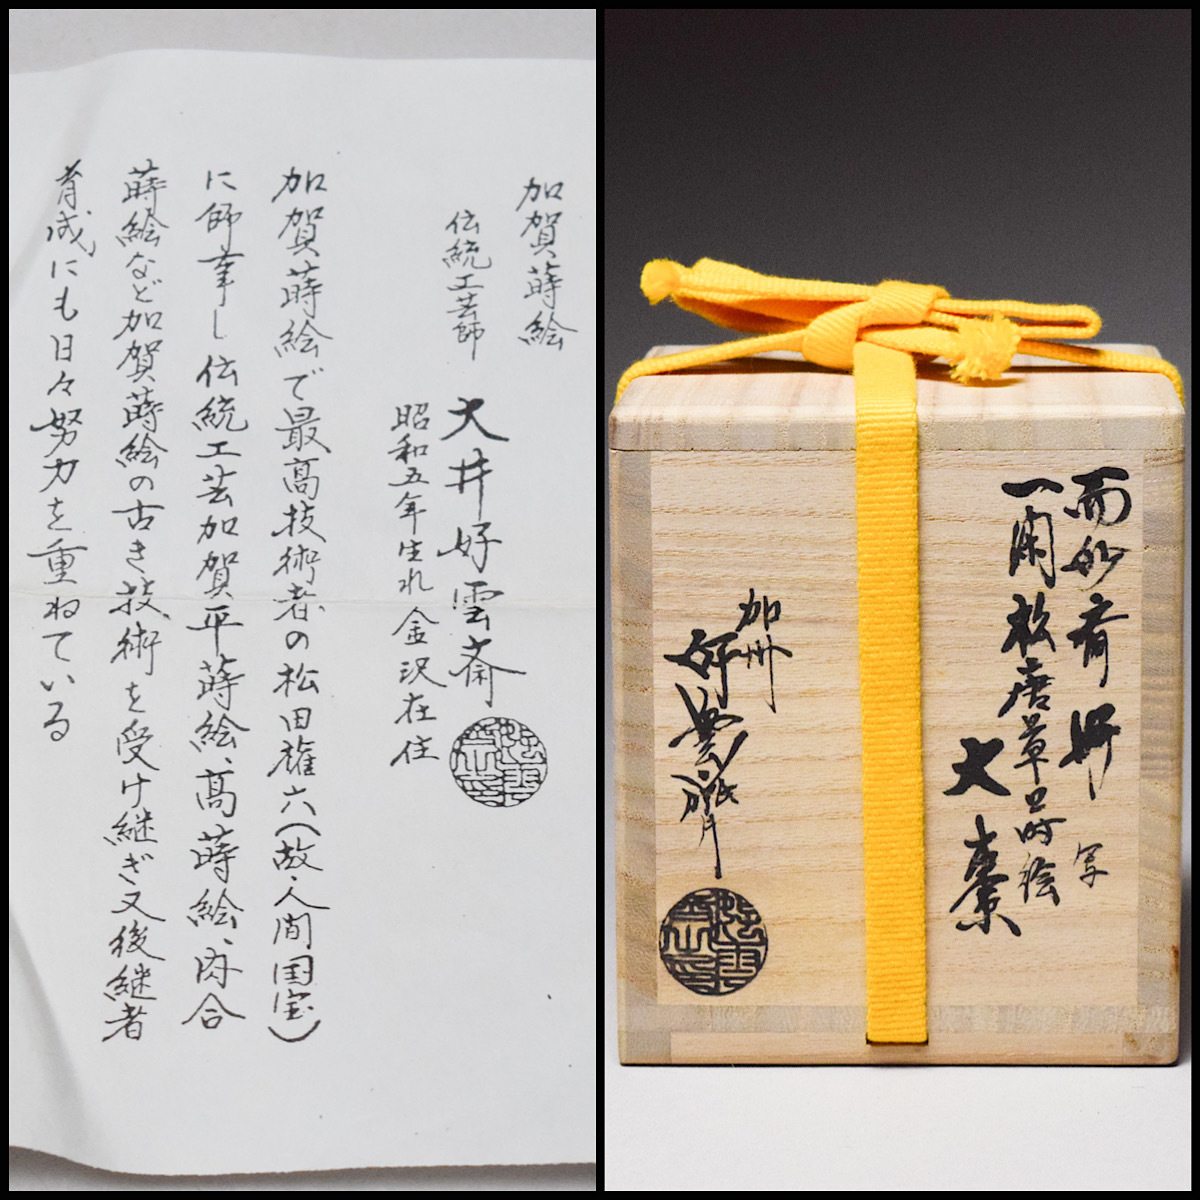 加賀蒔絵
伝統工芸師 大井好雲斎
昭和五年生れ 金沢在住
加賀蒔絵で最高技術者の松田権六(故・人間国宝)
に師事し伝統工芸加賀平蒔絵、高蒔絵、肉合
蒔絵など加賀蒔絵の古き技術を受け継ぎ又後継者
育成にも日々努力を重ねている
而妙斎 写
一閑 松唐草 蒔絵
大棗
加州
好雲斎